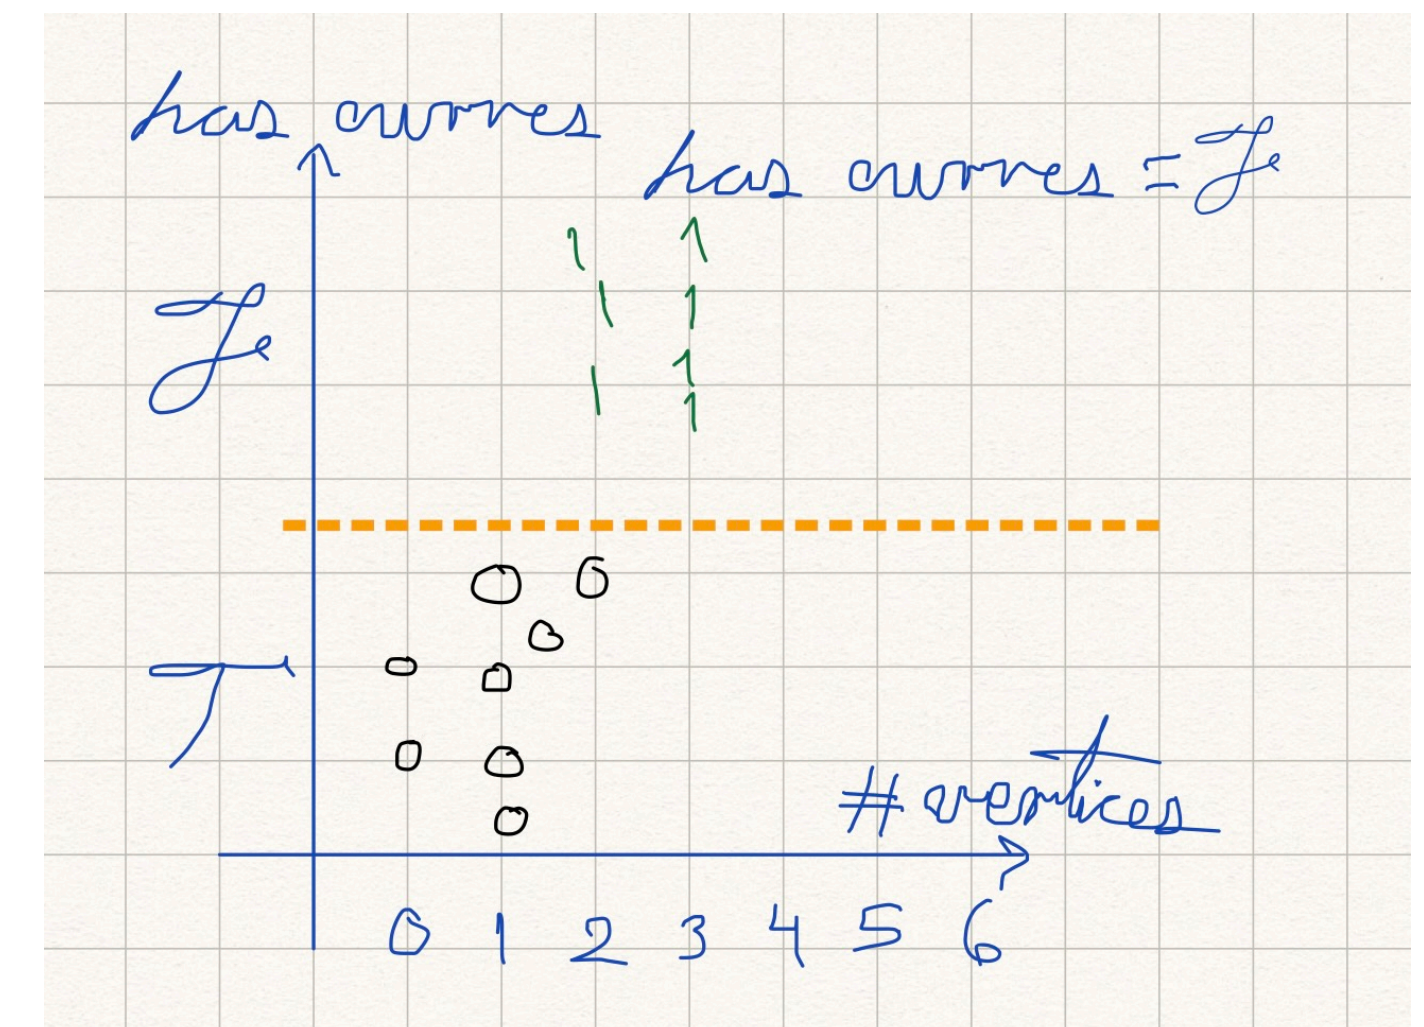 has curves
has curves = F
1 1
1 1
F
1 1
1
0 0
0
T 0 0
0 0
# vertices
0
0 1 2 3 4 5 6